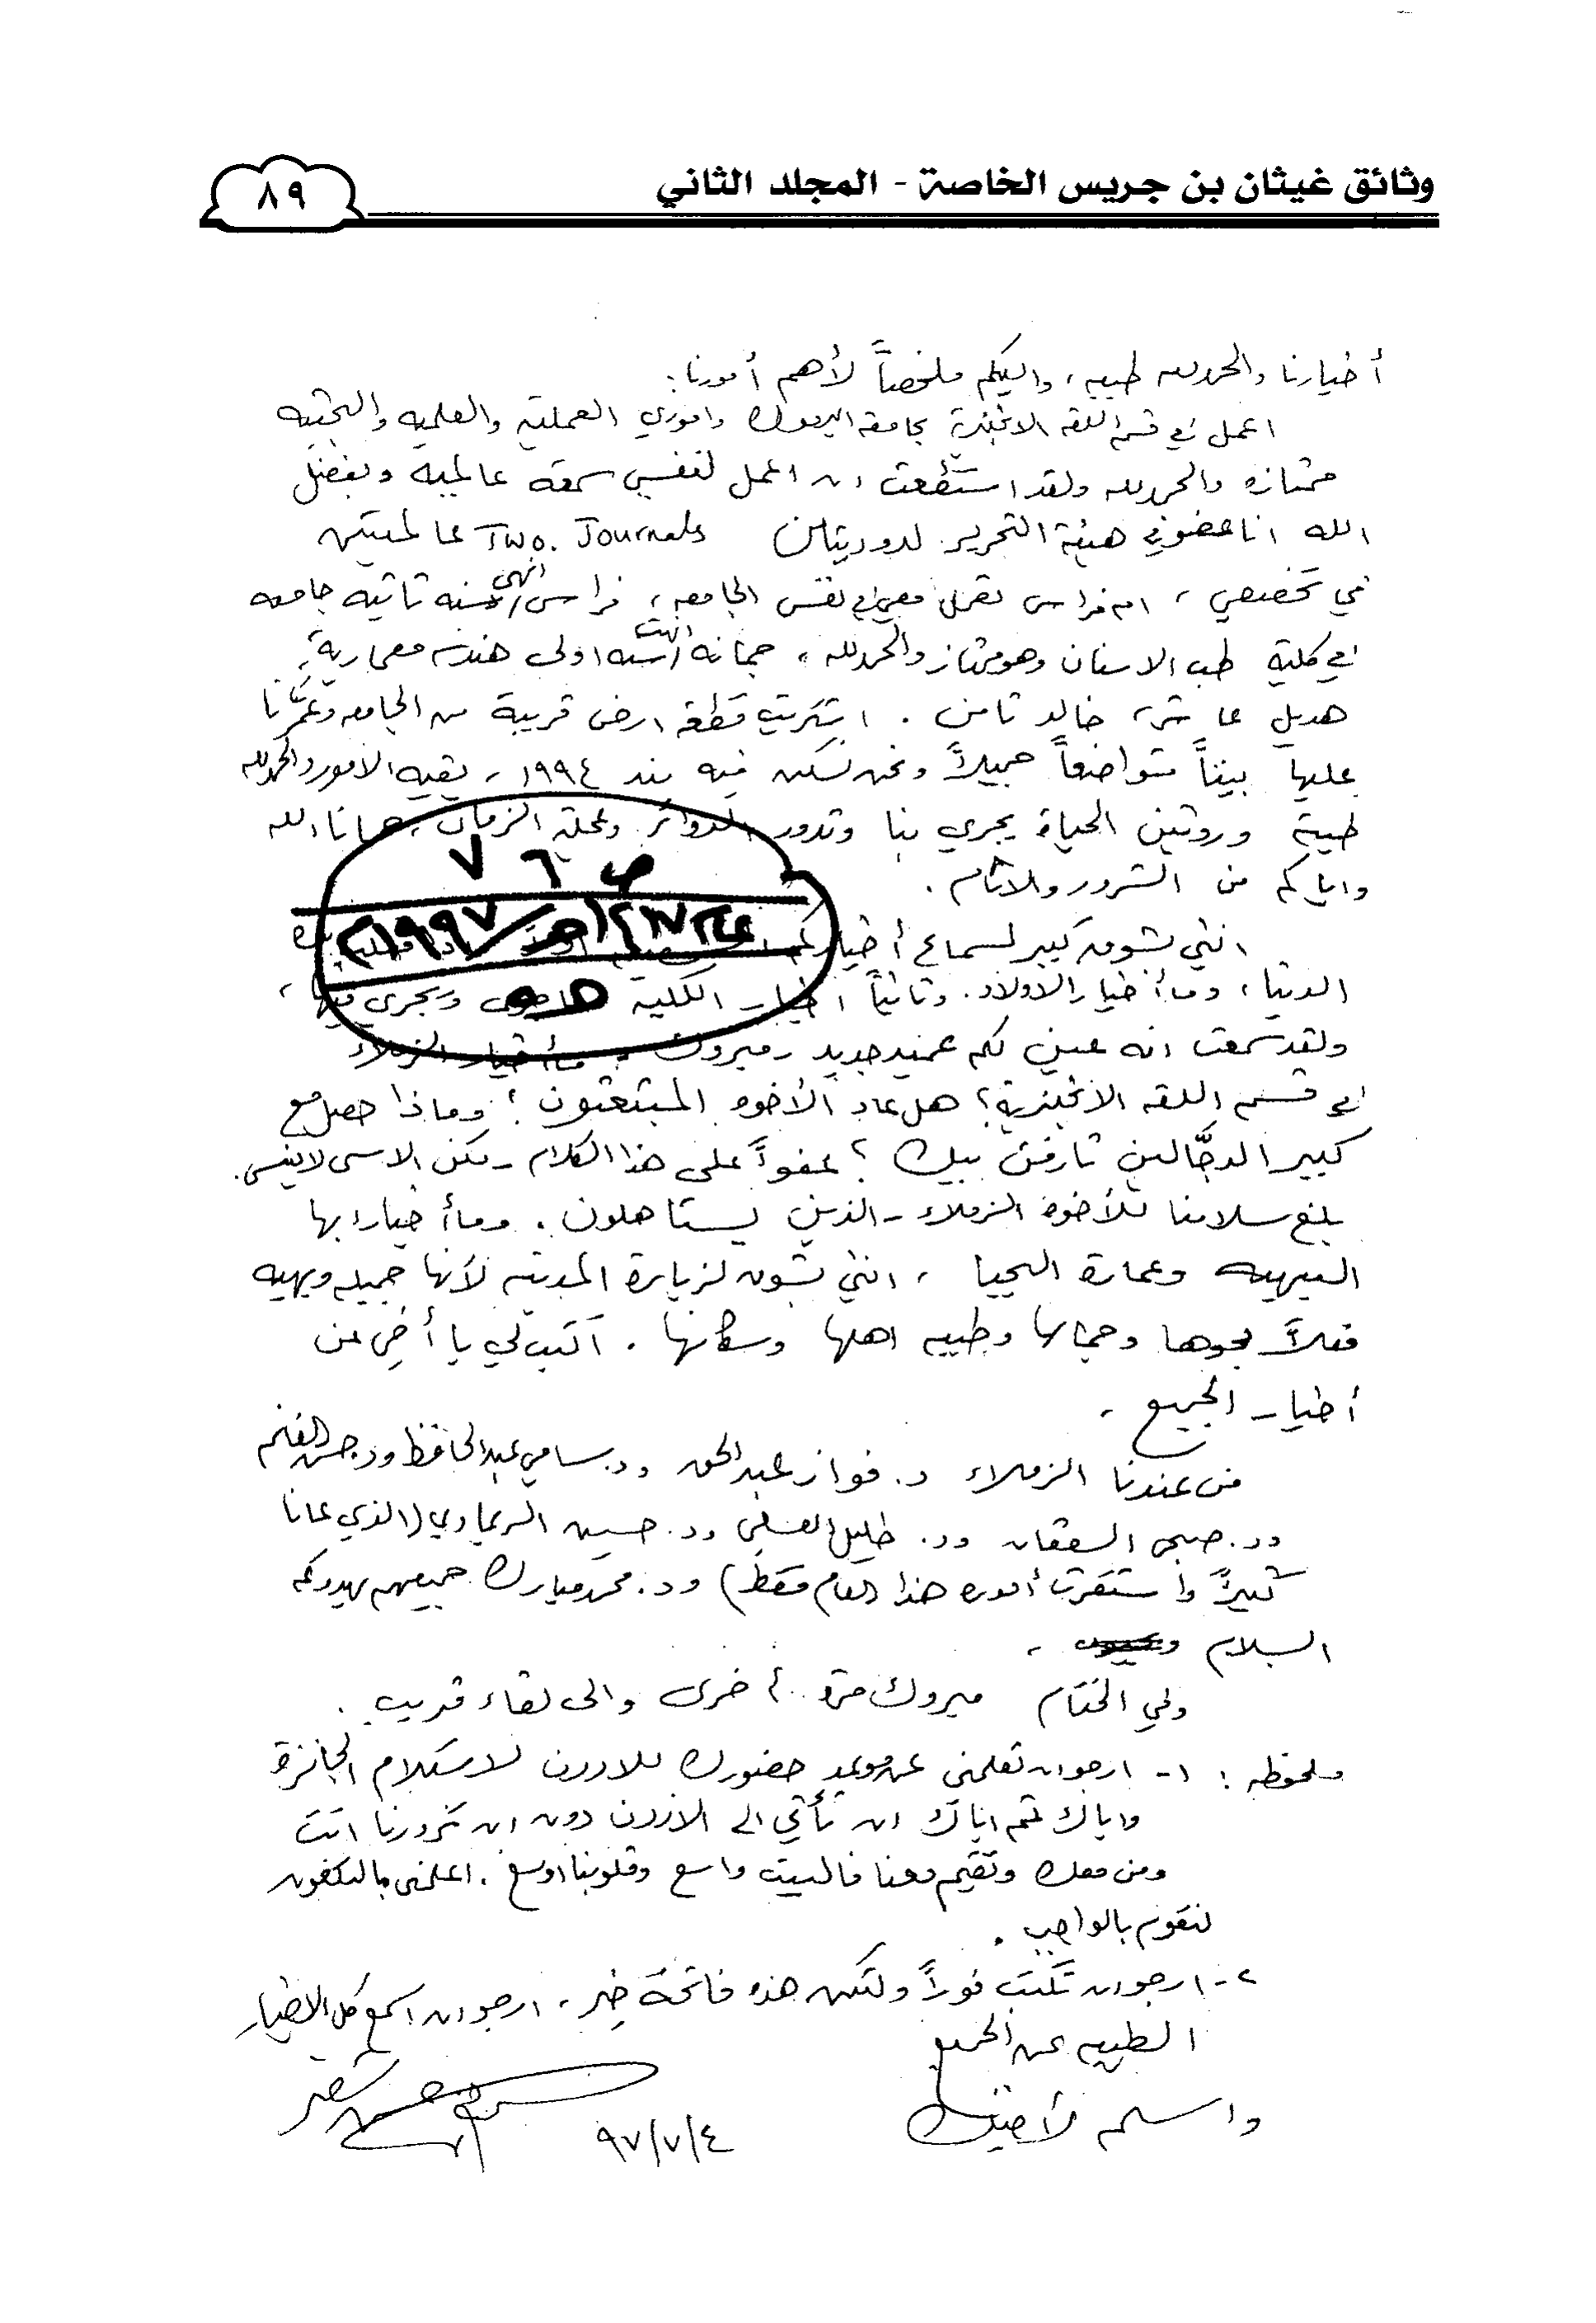 وثائق غيثان بن جريس الخاصة - المجلد الثاني
٨٩
أخبارنا والحمدلله طيبه، واليكم ملخصاً لأهم أمورنا:
اعمل في قسم اللغه الانجليزية بجامعه اليرموك واموري العمليه والعلميه والبحثيه
ممتازه والحمدلله ولقد استطعت ان اعمل لنفسي سمعه عالميه وبفضل
الله انا عضو في هيئة التحرير لدوريتين Two. Journals عالميتين
في تخصصي، ام فراس تعمل معي في نفس الجامعه، فراس انهى سنه ثانيه جامعه
في كلية طب الاسنان وهو ممتاز والحمدلله، جمانه انهت سنه اولى هندسه معمارية،
هديل عاشر، خالد ثامن. اشتريت قطعة ارض قريبة من الجامعه وعمّرنا
عليها بيتاً متواضعاً جميلاً ونحن نسكن فيه منذ ١٩٩٤، بقيه الامور والحمدلله
طيبة وروتين الحياة يجري بنا وتدور الدوائر وعجلة الزمان، حمانا الله
واياكم من الشرور والاثام.
ص ٦٧
١٩٩٧م
انني بشوق كبير لسماع أخباركم
الدنيا، وما أخبار الاولاد. وثانياً اخبار الكلية ويجري فيها،
ولقد سمعت انه عين لكم عميد جديد - مبروك. ما أخبار الزملاء
في قسم اللغه الانجليزية؟ هل عاد الأخوه المبتعثون؟ وماذا حصل مع
كبير الدجّالين بيك؟ عفواً على هذا الكلام - لكن الاسى لا ينسى.
بلغ سلامنا للأخوه الزملاء - الذين يستاهلون. وما أخبار ابها
البهيه وعمارة اليحيا، انني بشوق لزيارة المدينه لأنها جميله وبهيه
فعلاً بجوها وجمالها وطيبه اهلها وسكانها. اكتب لي يا أخي عن
أخبار الجميع.
من عندنا الزملاء د. فواز عبدالحق ود. سامي عبدالحافظ ود.
ود. صبحي ود. خليل ود. حسين الريماوي (الذي عانا
كثيراً واستقرت أموره هذا العام فقط) ود. محمد مبارك جميعهم يهدوكم
السلام
وفي الختام مبروك مرة أخرى والى لقاء قريب.
ملحوظه: ١- ارجو ان تعلمني عن موعد حضورك للاردن لاستلام الجائزة
واياك ثم اياك ان تأتي الى الاردن دون ان تزورنا انت
ومن معك وتقيم معنا فالبيت واسع وقلوبنا اوسع. اعلمني بالتلفون
لنقوم بالواجب.
٢- ارجو ان تكتب فوراً ولتكن هذه فاتحة خير، ارجو ان اسمع كل الاخبار
الطيبه عن الجميع
واسلم لأخيك
٩٧/٧/٤